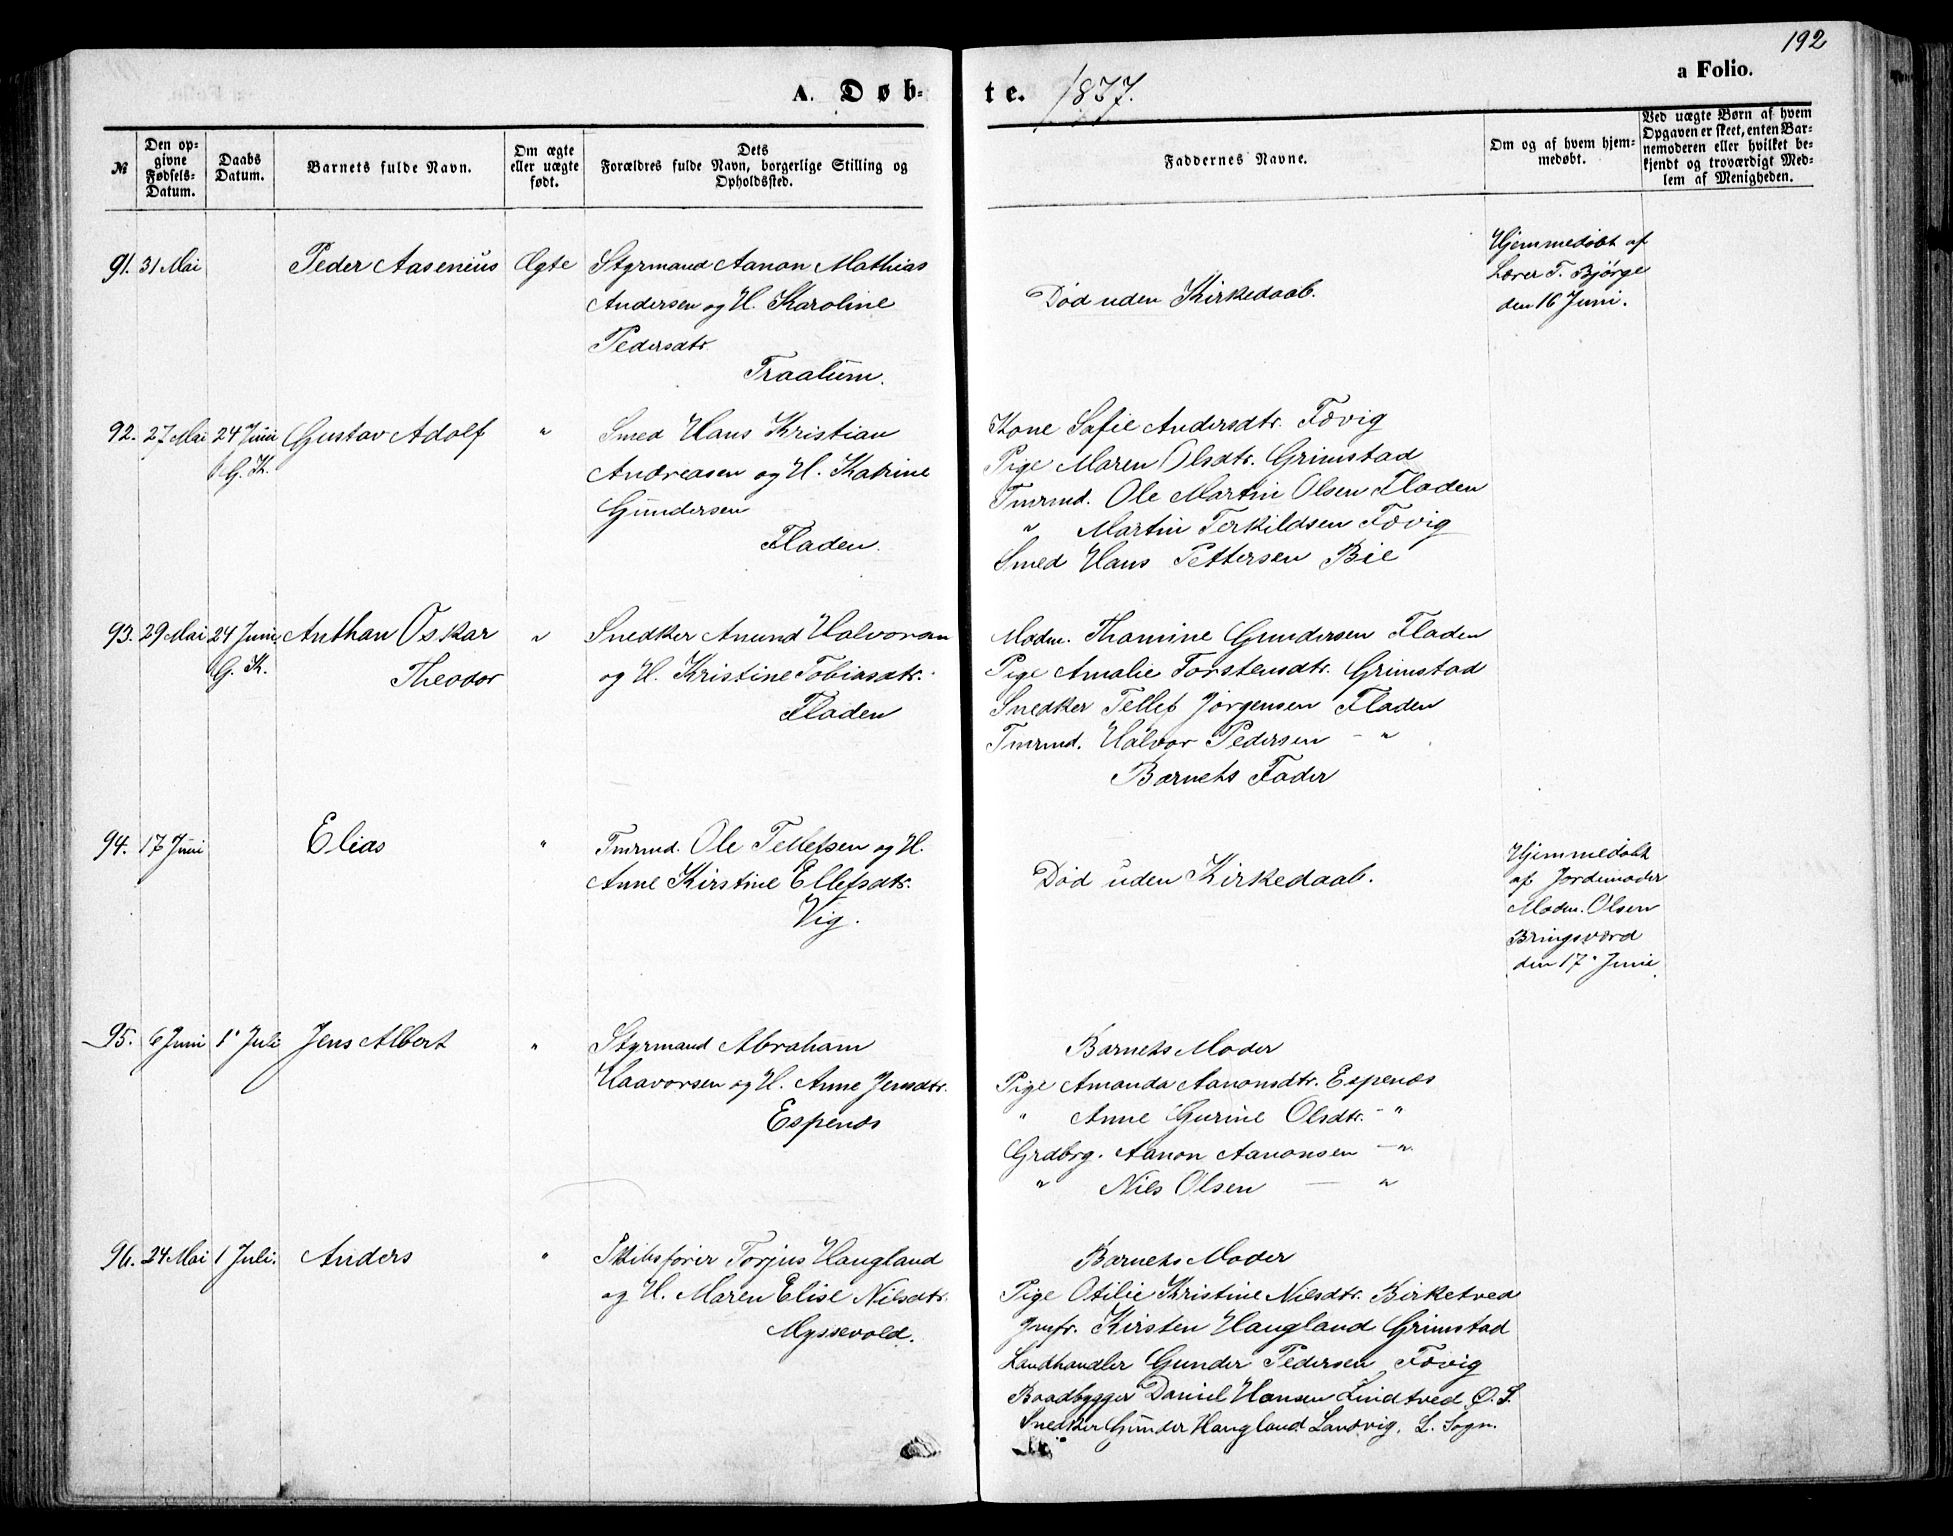 192
a Folio.
A. Døb-
te. 1877.
№
Den opgivne Fødsels-Datum.
Daabs Datum.
Barnets fulde Navn.
Om ægte eller uægte født.
Dets Forældres fulde Navn, borgerlige Stilling og Opholdssted.
Faddernes Navne.
Om og af hvem hjemmedøbt.
Ved uægte Børn af hvem Opgaven er skeet, enten Barnemoderen eller hvilket bekjendt og troværdigt Medlem af Menigheden.
91. 31 Mai Peder Aasenius Ægte Styrmand Aanon Mathias
Andersen og H. Karoline
Pedersdtr.
Traalum.
Død uden Kirkedaab.
Hjemmedøbt af
Lærer T. Bjørge
den 16 Juni.
92. 27 Mai 24 Juni Gustav Adolf " Smed Hans Kristian
G. K. Andreasen og H. Katrine
Gundersen
Fladen.
Kone Safie Andersdtr. Fævig
Pige Maren Olsdtr. Grimstad
Tmrmd. Ole Martin Olsen Fladen
" Martin Terkildsen Fævig
Smed Hans Pettersen Bie
93. 29 Mai 24 Juni Anthan Oskar " Snedker Anund Halvorsen
G. K. Theodor og H. Kristine Tobiasdtr.
Fladen
Madm. Thomine Gundersen Fladen
Pige Amalie Torstensdtr. Grimstad
Snedker Tellef Jørgensen Fladen
Tmrmd. Halvor Pedersen - "
Barnets Fader
94. 17 Juni Elias " Tmrmd. Ole Tellefsen og H.
Anne Kirstine Ellefsdtr.
Vig.
Død uden Kirkedaab.
Hjemmedøbt
af Jordemoder
Madm. Olsen
Bringsværd
den 17 Juni.
95. 6 Juni 1 Juli Jens Albert " Styrmand Abraham
Haavorsen og H. Anne Jensdtr.
Espenæs
Barnets Moder
Pige Amanda Aanonsdtr. Espenæs
" Anne Gurine Olsdtr. - "
Grdbrg. Aanon Aanonsen - "
" Niels Olsen - "
96. 24 Mai 1 Juli. Anders " Skibsfører Torjus Haugland
og H. Maren Elise Nilsdtr.
Myssevold.
Barnets Moder
Pige Otilie Kristine Nilsdtr. Birketved
Jmfr. Kirsten Haugland Grimstad
Landhandler Gunder Pedersen Fævig
Baadbygger Daniel Hansen Lindtved Ø. S.
Snedker Gunder Haugland Landvig. L. Sogn.